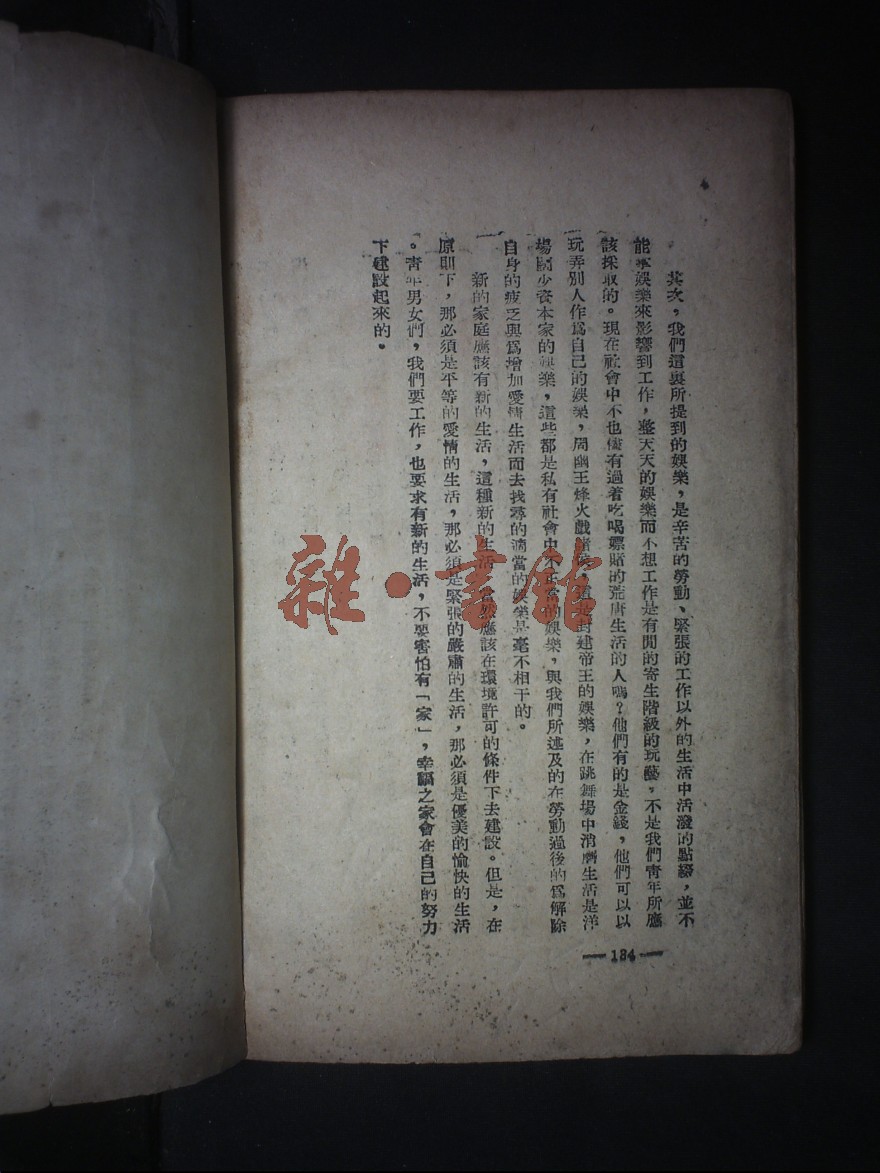 其次，我們這裏所提到的娛樂，是辛苦的勞動、緊張的工作以外的生活中活潑的點綴，並不
能拿娛樂來影響到工作，整天天的娛樂而不想工作是有閒的寄生階級的玩藝，不是我們青年所應
該採取的。現在社會中不也儘有過着吃喝嫖賭的荒唐生活的人嗎？他們有的是金錢，他們可以以
玩弄別人作爲自己的娛樂，周幽王烽火戲諸侯，這是封建帝王的娛樂，在跳舞場中消磨生活是洋
場闊少資本家的娛樂，這些都是私有社會中不正當的娛樂，與我們所述及的在勞動過後的爲解除
自身的疲乏與爲增加愛情生活而去找尋的適當的娛樂是毫不相干的。
新的家庭應該有新的生活，這種新的生活，當然應該在環境許可的條件下去建設。但是，在
原則下，那必須是平等的愛情的生活，那必須是緊張的嚴肅的生活，那必須是優美的愉快的生活
。青年男女們，我們要工作，也要求有新的生活，不要害怕有「家」，幸福之家會在自己的努力
下建設起來的。
—184—
雜·書館